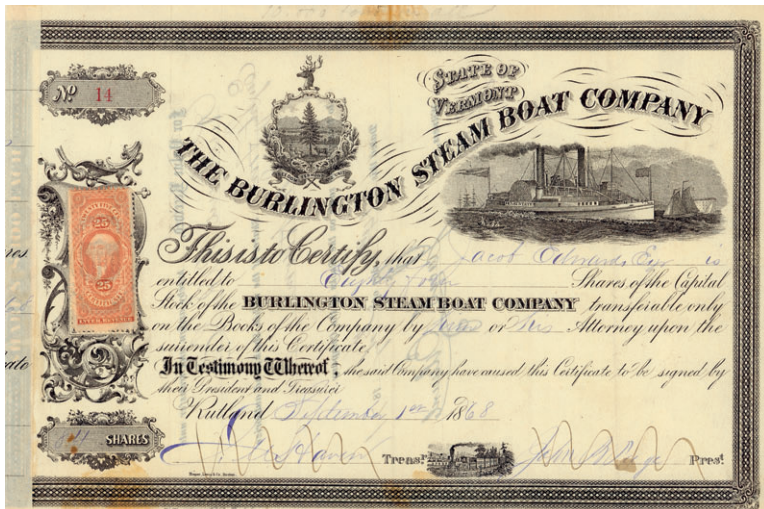 Nº 14
STATE OF
VERMONT
THE BURLINGTON STEAM BOAT COMPANY
25
25
This is to Certify, that Jacob Edwards, Esq is
entitled to Eighty four Shares of the Capital
Stock of the BURLINGTON STEAM BOAT COMPANY transferable only
on the Books of the Company by him or his Attorney upon the
surrender of this Certificate
In Testimony Whereof, the said Company have caused this Certificate to be signed by
their President and Treasurer
Rutland September 1st 1868
84 SHARES
Treasr.
Prest.